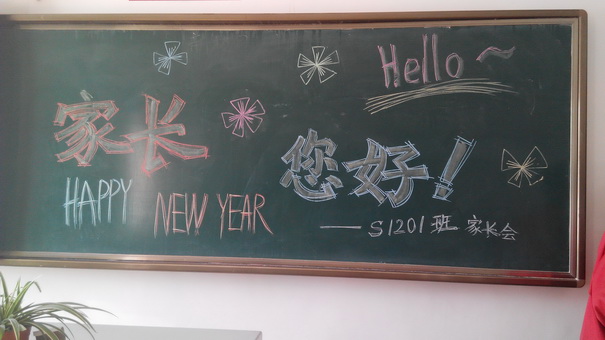 Hello ~
家长
您好!
HAPPY NEW YEAR
——S1201班 家长会